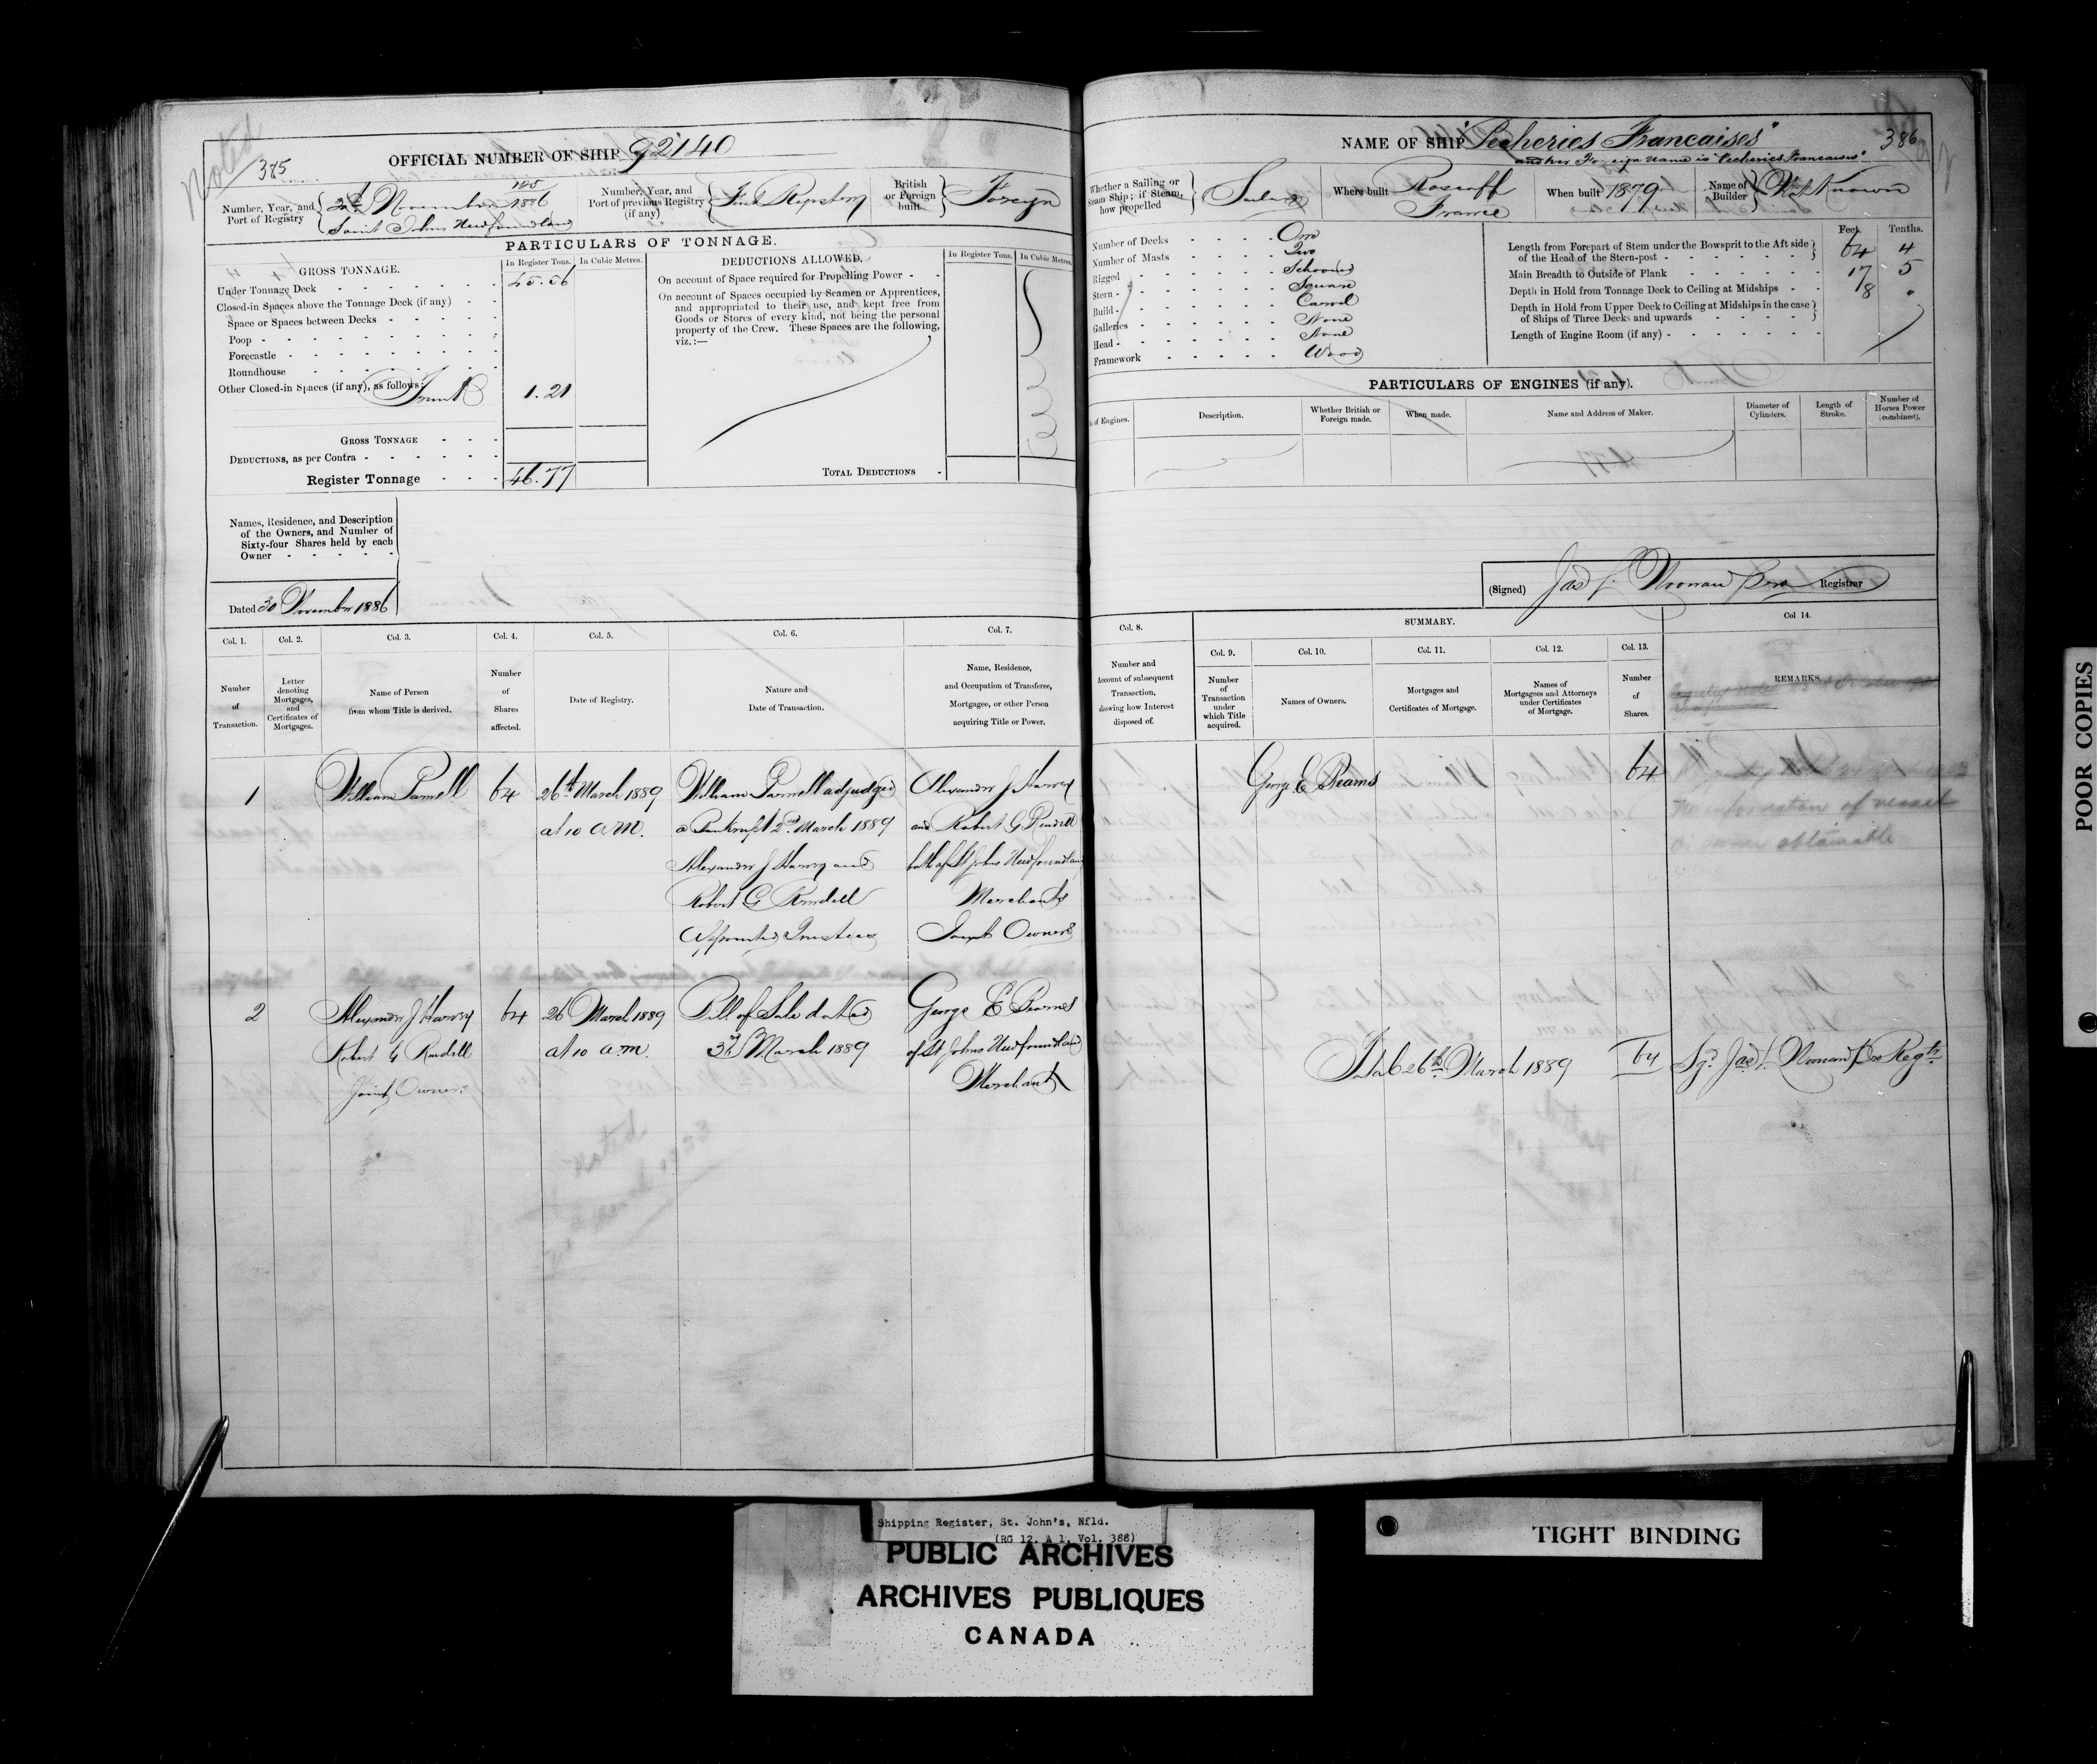 Noted
385
OFFICIAL NUMBER OF SHIP 92140
Number, Year, and
Port of Registry
November 1886
Saint Johns Newfoundland
Number, Year, and
Port of previous Registry
(if any)
First Registry
British
or Foreign
built
Foreign
PARTICULARS OF TONNAGE.
GROSS TONNAGE.
In Register Tons.
In Cubic Metres.
Under Tonnage Deck 45.56
Closed-in Spaces above the Tonnage Deck (if any)
Space or Spaces between Decks
Poop
Forecastle
Roundhouse
Other Closed-in Spaces (if any), as follows: Trunk 1.21
GROSS TONNAGE
DEDUCTIONS, as per Contra
Register Tonnage 46.77
DEDUCTIONS ALLOWED.
In Register Tons.
In Cubic Metres.
On account of Space required for Propelling Power
On account of Spaces occupied by Seamen or Apprentices,
and appropriated to their use, and kept free from
Goods or Stores of every kind, not being the personal
property of the Crew. These Spaces are the following,
viz.:—
TOTAL DEDUCTIONS
Names, Residence, and Description
of the Owners, and Number of
Sixty-four Shares held by each
Owner
Dated 30 November 1886
Col. 1. Col. 2. Col. 3. Col. 4. Col. 5. Col. 6. Col. 7.
Number
of
Transaction.
Letter
denoting
Mortgages,
and
Certificates of
Mortgages.
Name of Person
from whom Title is derived.
Number
of
Shares
affected.
Date of Registry.
Nature and
Date of Transaction.
Name, Residence,
and Occupation of Transferee,
Mortgagee, or other Person
acquiring Title or Power.
1
William Parnell
64
26th March 1889
at 10 a.m.
William Parnell adjudged
a Bankrupt 2nd March 1889
Alexander J Harvey and
Robert G Rendell
Appointed Trustees
Alexander J Harvey
and Robert G Rendell
both of St Johns Newfoundland
Merchants
Joint Owners
2
Alexander J Harvey
Robert G Rendell
Joint Owners
64
26 March 1889
at 10 a.m.
Bill of Sale dated
March 1889
George E Bearns
of St Johns Newfoundland
Merchant
NAME OF SHIP "Pecheries Francaises"
and her Foreign name is "Pecheries Francaises"
386
Whether a Sailing or
Steam Ship; if Steam,
how propelled
Sailing
Where built
Roscoff
France
When built 1879
Name of
Builder
Not Known
Number of Decks One
Number of Masts Two
Rigged Schooner
Stern Square
Build Carvel
Galleries None
Head None
Framework Wood
Feet. Tenths.
Length from Forepart of Stem under the Bowsprit to the Aft side
of the Head of the Stern-post 64 4
Main Breadth to Outside of Plank 17 5
Depth in Hold from Tonnage Deck to Ceiling at Midships 8 "
Depth in Hold from Upper Deck to Ceiling at Midships in the case
of Ships of Three Decks and upwards
Length of Engine Room (if any)
PARTICULARS OF ENGINES (if any).
of Engines.
Description.
Whether British or
Foreign made.
When made.
Name and Address of Maker.
Diameter of
Cylinders.
Length of
Stroke.
Number of
Horses Power
(combined).
(Signed) Jas L Noonan Registrar
Col. 8.
SUMMARY.
Col 14.
Col. 9. Col. 10. Col. 11. Col. 12. Col. 13.
Number and
Account of subsequent
Transaction,
showing how Interest
disposed of.
Number
of
Transaction
under
which Title
acquired.
Names of Owners.
Mortgages and
Certificates of Mortgage.
Names of
Mortgagees and Attorneys
under Certificates
of Mortgage.
Number
of
Shares.
REMARKS.
George E Bearns
64
No information of vessel
or owner obtainable
26th March 1889
64
Sgd Jas L Noonan Regtr
POOR COPIES
Shipping Register, St. John's, Nfld.
(RG 12, A 1, Vol. 388)
PUBLIC ARCHIVES
ARCHIVES PUBLIQUES
CANADA
TIGHT BINDING